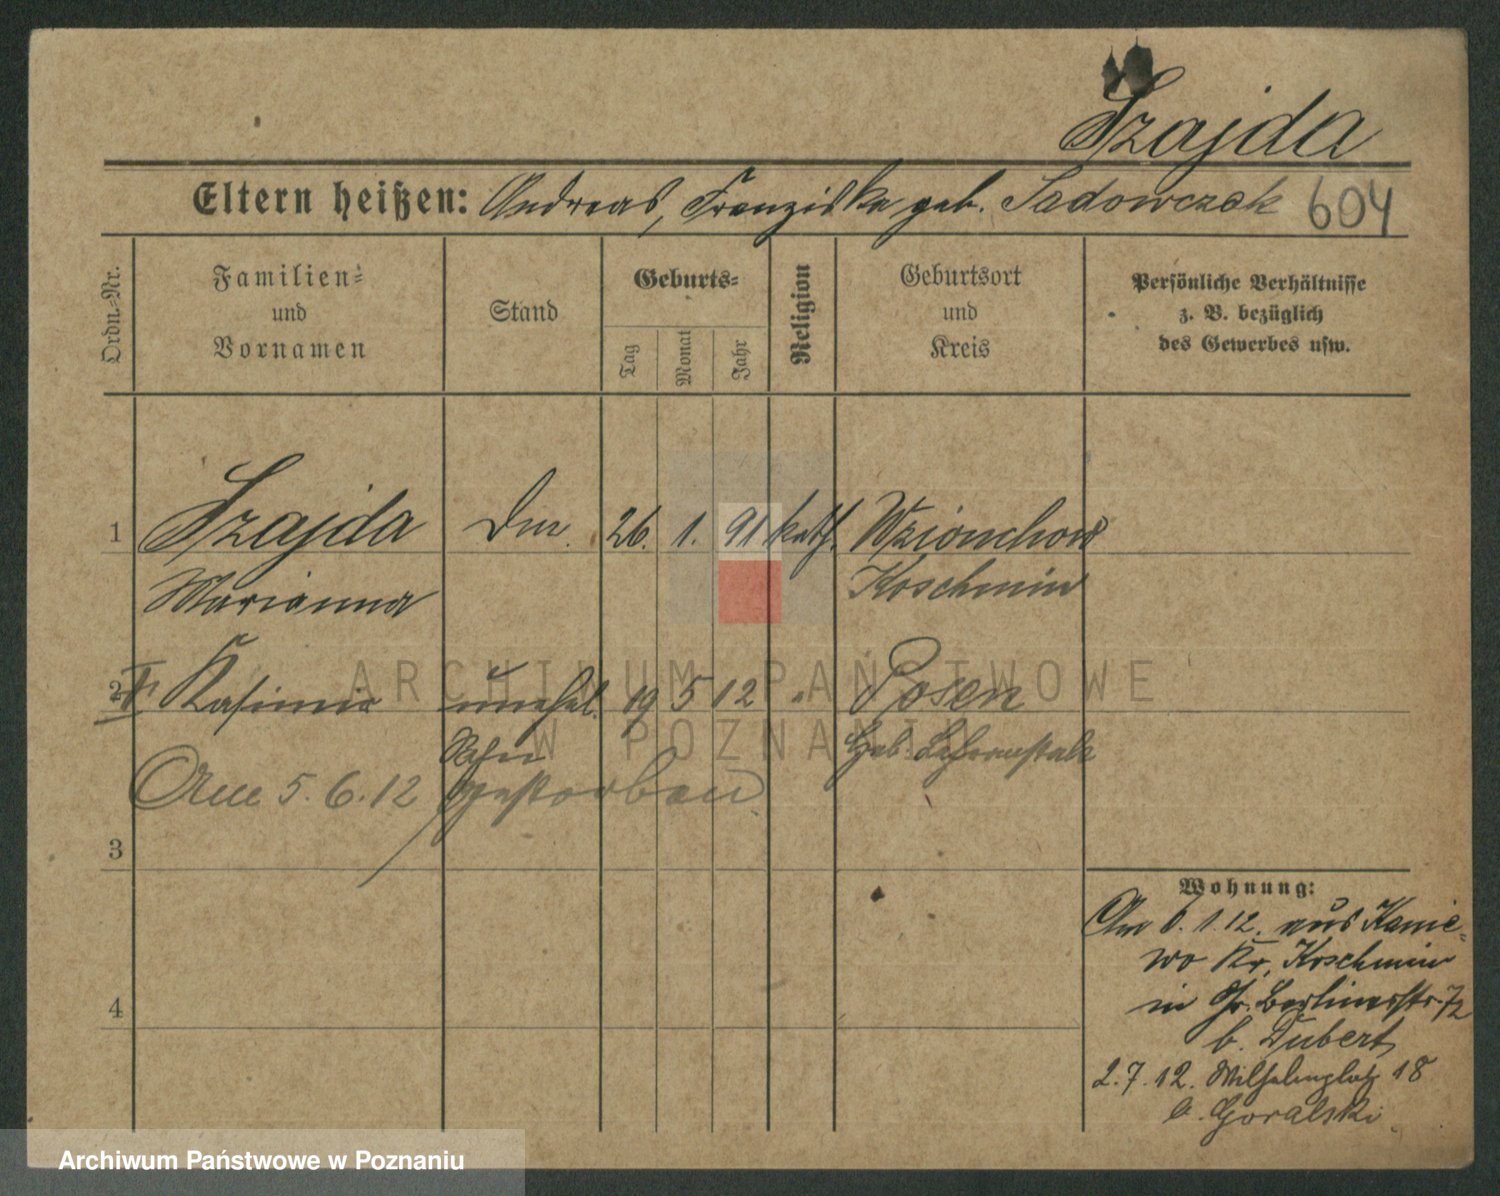 Szajda
Eltern heißen: Andreas, Franziska geb. Sadowczak 604
Ordn.-Nr.
Familien-
und
Vornamen
Stand
Geburts-
Tag
Monat
Jahr
Religion
Geburtsort
und
Kreis
Persönliche Verhältnisse
z. B. bezüglich
des Gewerbes usw.
1 Szajda 26. 1. 91 kath. Wzionchow
Marianna Koschmin
2 Kasimir unehel. 19 5 12 " Posen
Sohn Heb. Lehranstalt
Am 5. 6. 12 gestorben
3
4
Wohnung:
Am 6. 1. 12. aus Kanie-
wo Kr. Koschmin
in Gr. Berlinerstr. 72
b. Dubert
2. 7. 12. Wilhelmplatz 18
b. Goralski
ARCHIWUM PAŃSTWOWE
W POZNANIU
Archiwum Państwowe w Poznaniu